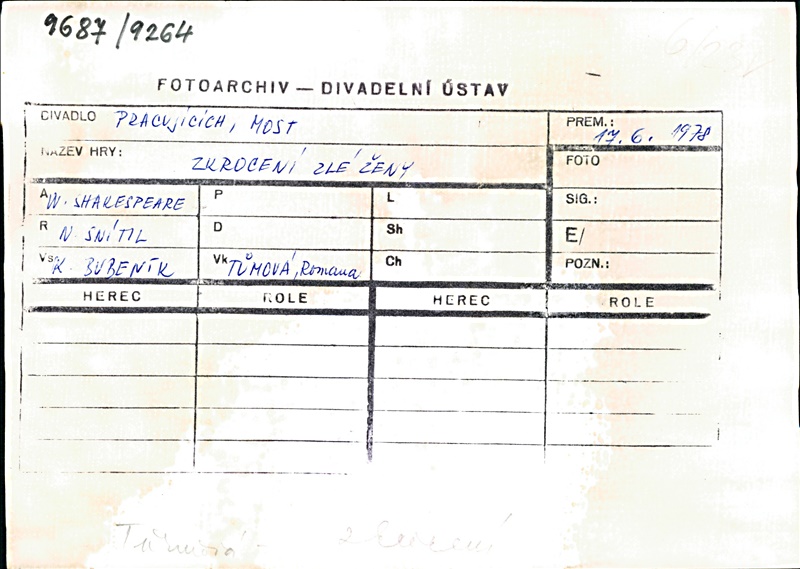 9687/9264
FOTOARCHIV — DIVADELNÍ ÚSTAV
DIVADLO PRACUJÍCÍCH, MOST
PREM.: 17. 6. 1978
NÁZEV HRY: ZKROCENÍ ZLÉ ŽENY
FOTO
A W. SHAKESPEARE P L SIG.:
R N. SNÍTIL D Sh E/
Vs K. BUBENÍK Vk TŮMOVÁ, Romana Ch POZN.:
HEREC ROLE HEREC ROLE
Tůmová zkrocení